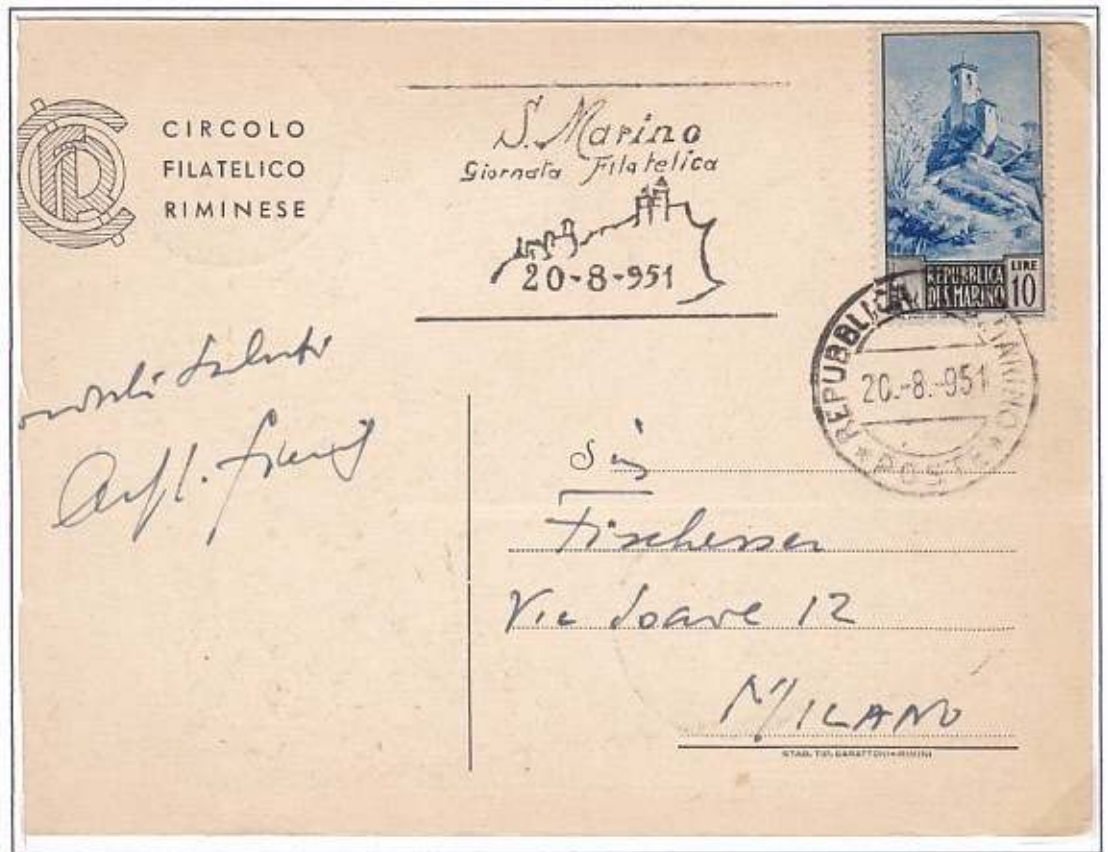 CIRCOLO
FILATELICO
RIMINESE
S. Marino
Giornata Filatelica
20-8-951
REPUBBLICA
DI S. MARINO
LIRE
10
REPUBBLICA MARINO
20.-8.-951
* POSTE *
saluti
Fischesser
Via Soave 12
MILANO
STAB. TIP. GARATTONI-RIMINI